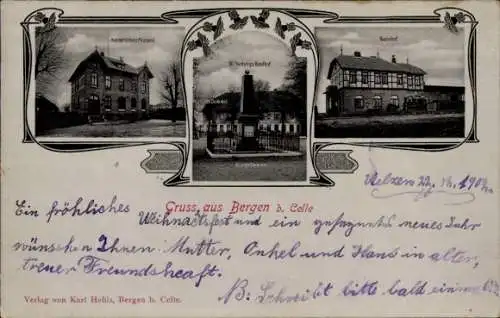 Kaiserliches Postamt
W. Hartungs Gasthof
Bahnhof
Kriegerdenkmal
Uelzen 22. 12. 190
Gruss aus Bergen b. Celle
Ein fröhliches Weihnachtsfest und ein gesegnetes neues Jahr
wünschen Ihnen Mutter, Onkel und Hans in alter,
treuer Freundshcaft.
NB: Schreibt bitte bald einmal
Verlag von Karl Hohls, Bergen b. Celle.